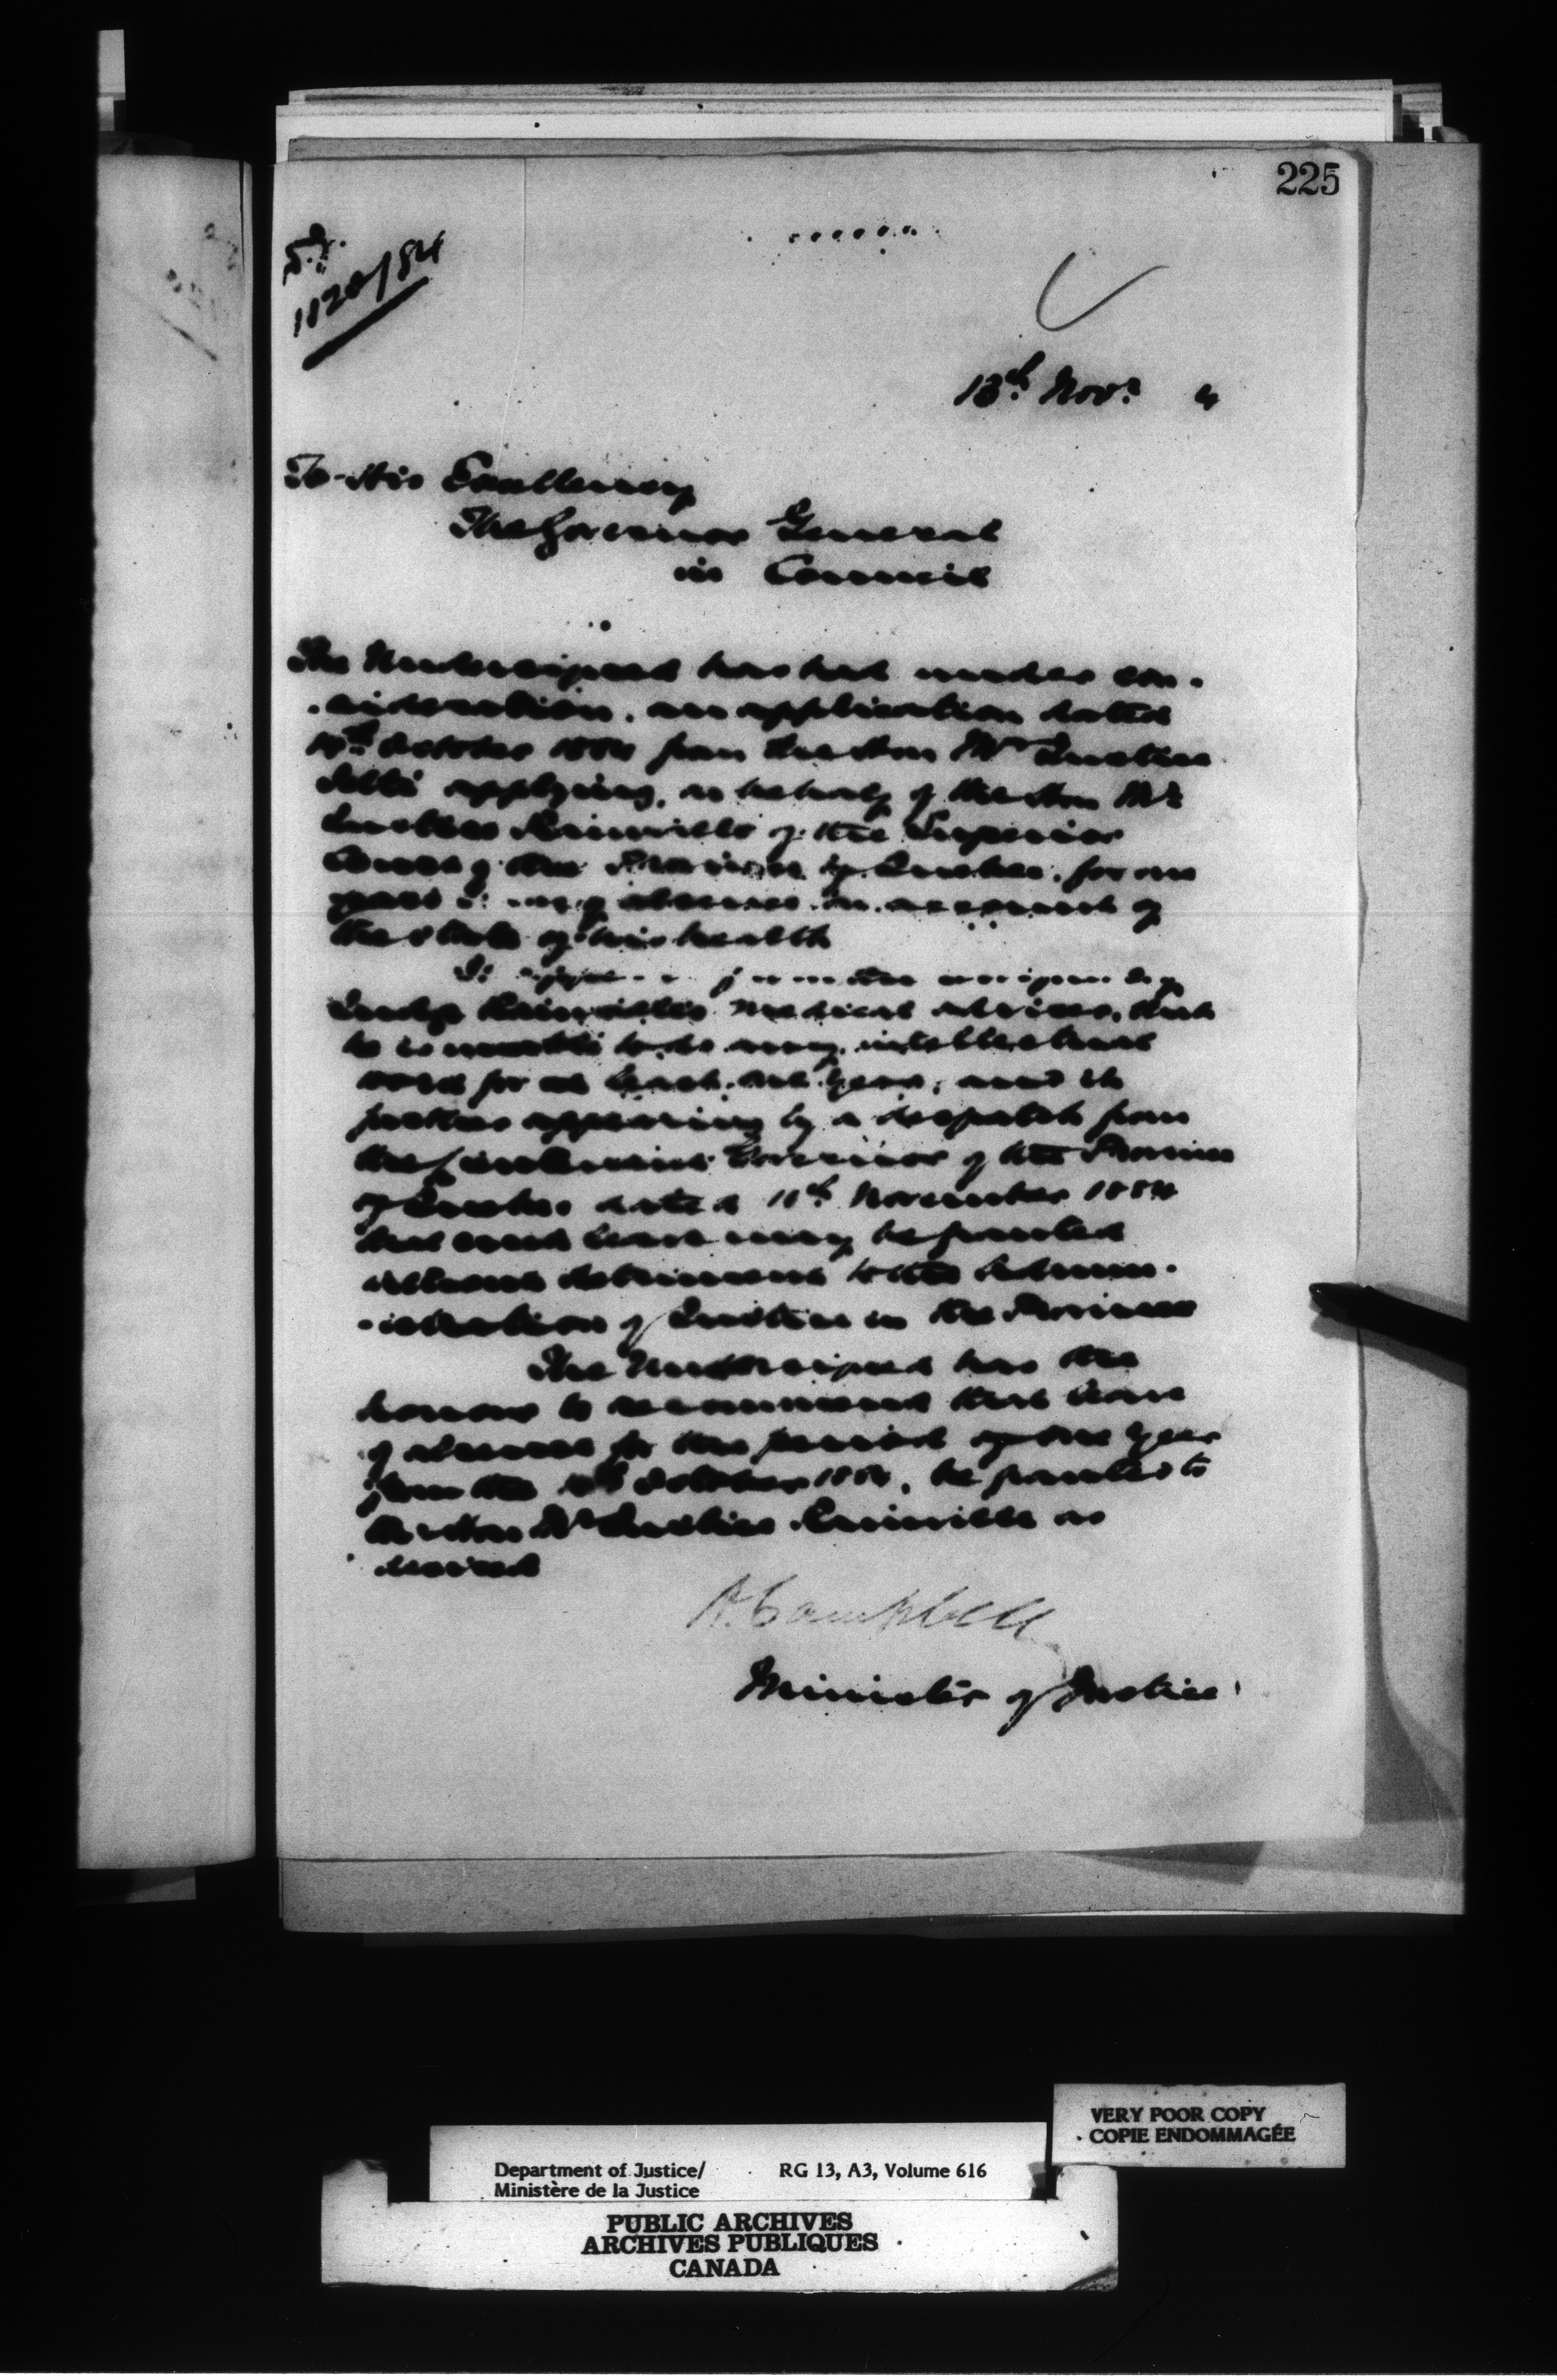 225
1120/84
13th Novr 4
To His Excellency
The Governor General
in Council
The Undersigned has had under con-
-sideration, an application dated
October 1884 from the Hon Mr Justice
applying, on behalf of the Hon Mr
Justice Rainville of the Superior
Court of the Province of Quebec, for one
years absence on account of
the state of his health
It
Judge Rainville's medical advisers, that
he is unable to do any intellectual
work for at least one year, and it
further appearing by a despatch from
the Lieutenant Governor of the Province
of Quebec dated 11th November 1884
that such leave may be granted
without detriment to the Admin-
-istration of Justice in the Province
The Undersigned has the
honour to recommend that leave
of absence for the period of one year
from the October 1884, be granted to
the Hon Mr Justice Rainville as
desired
A. Campbell
Minister of Justice
VERY POOR COPY
COPIE ENDOMMAGÉE
Department of Justice/ RG 13, A3, Volume 616
Ministère de la Justice
PUBLIC ARCHIVES
ARCHIVES PUBLIQUES
CANADA